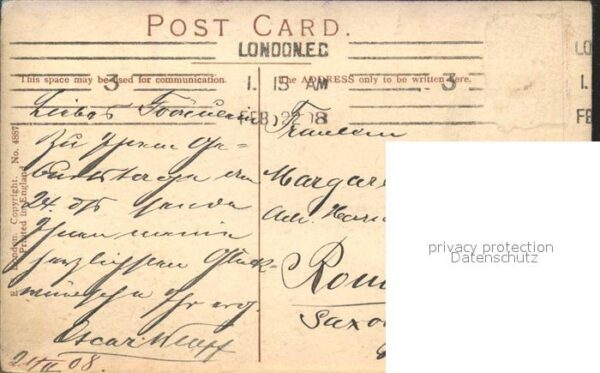 POST CARD.
LONDON.E.C
This space may be used for communication.
The ADDRESS only to be written here.
3
1. 15 AM
3
FEB 22 08
LON
1.
FEB
Liebes Fräulein
Zu Ihrem Ge-
burtstage am
24. ds sende
Ihnen meine
herzlichsten Glück-
wünsche Ihr erg.
Oscar
21/II 08.
London. Copyright. No. 4887.
Printed in England
Fräulein
Margare
Saxo
privacy protection
Datenschutz